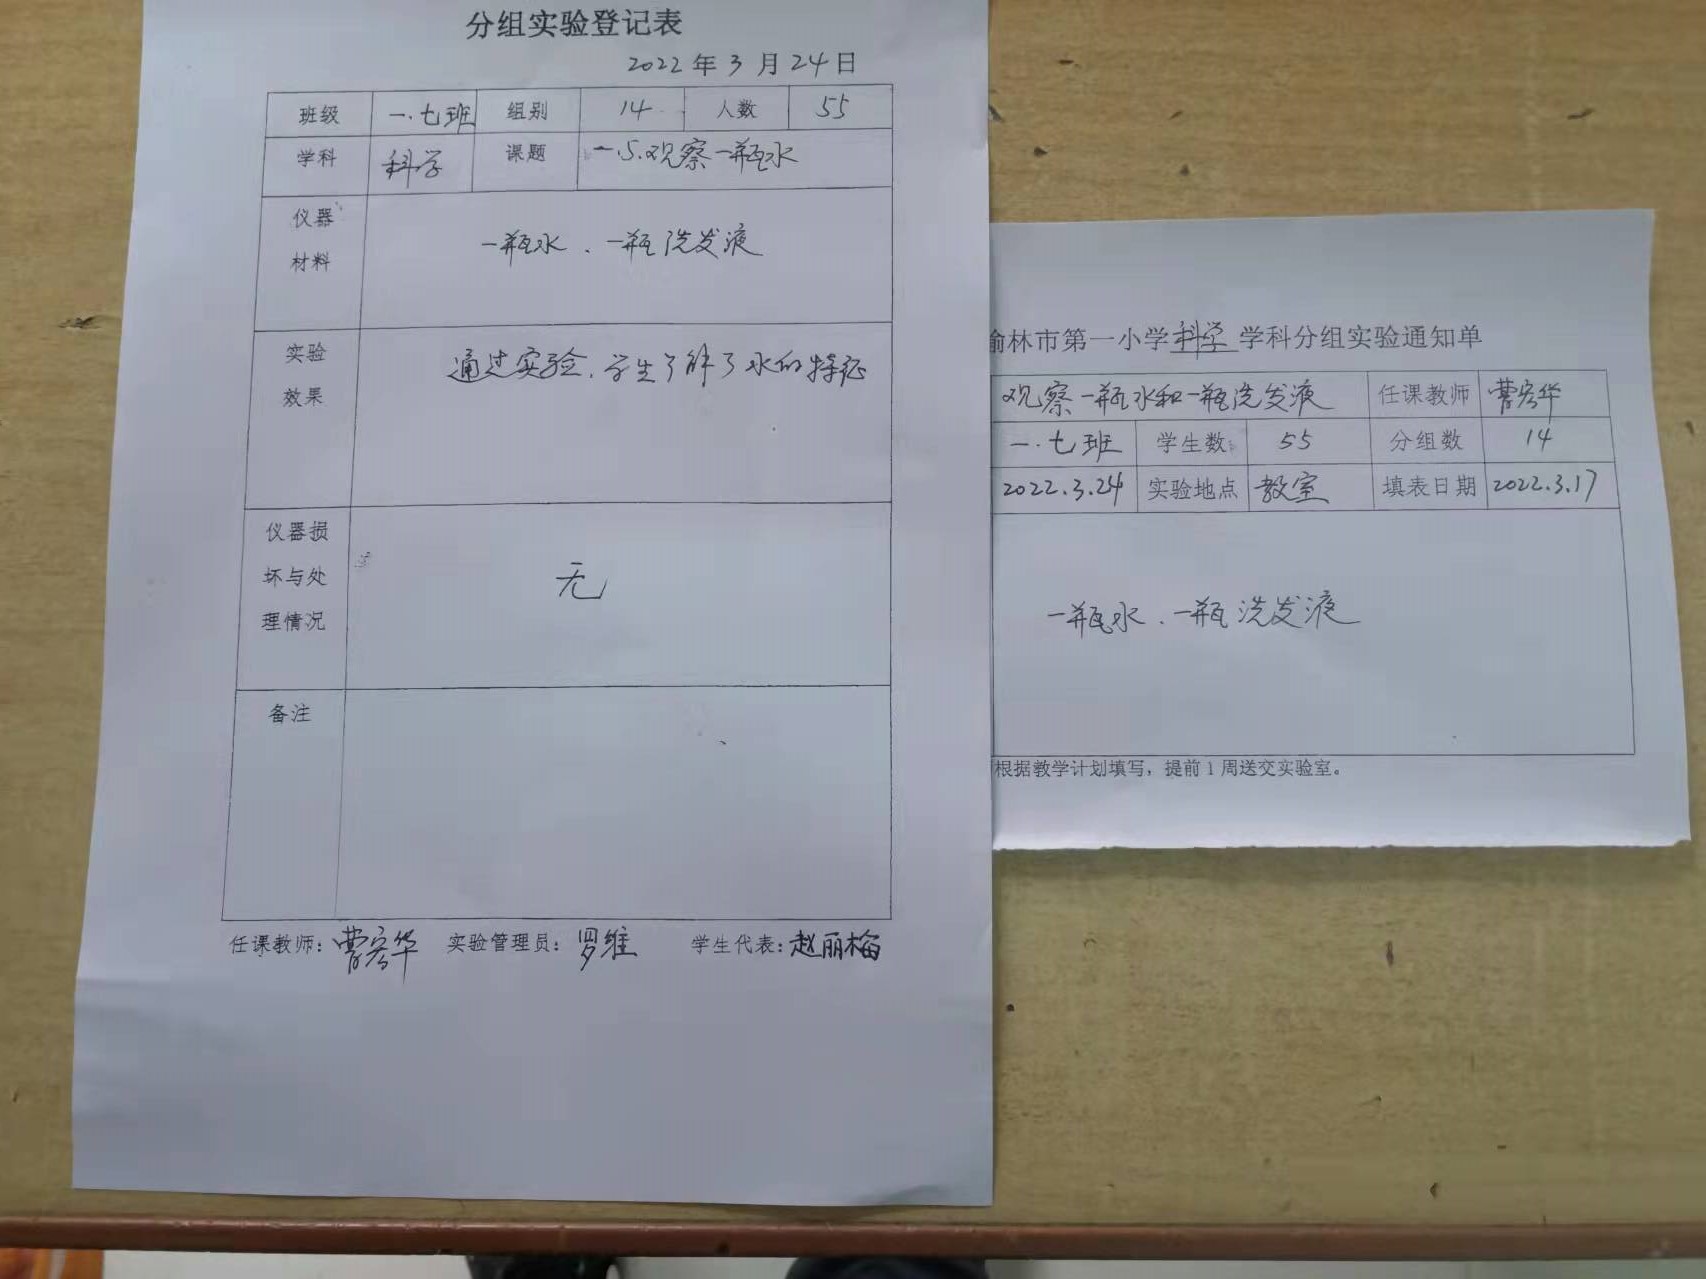 分组实验登记表
2022年3月24日
班级 一.七班 组别 14 人数 55
学科 科学 课题 一.5.观察一瓶水
仪器
材料
一瓶水、一瓶洗发液
实验
效果
通过实验,学生了解了水的特征
仪器损
坏与处
理情况
无
备注
任课教师:曹宏华 实验管理员:罗维 学生代表:赵丽梅
榆林市第一小学科学学科分组实验通知单
观察一瓶水和一瓶洗发液 任课教师 曹宏华
一.七班 学生数 55 分组数 14
2022.3.24 实验地点 教室 填表日期 2022.3.17
一瓶水、一瓶洗发液
根据教学计划填写，提前1周送交实验室。